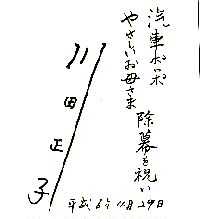 汽車ポッポ
やさしいお母さま
除幕を祝い
川田正子
平成6年11月29日